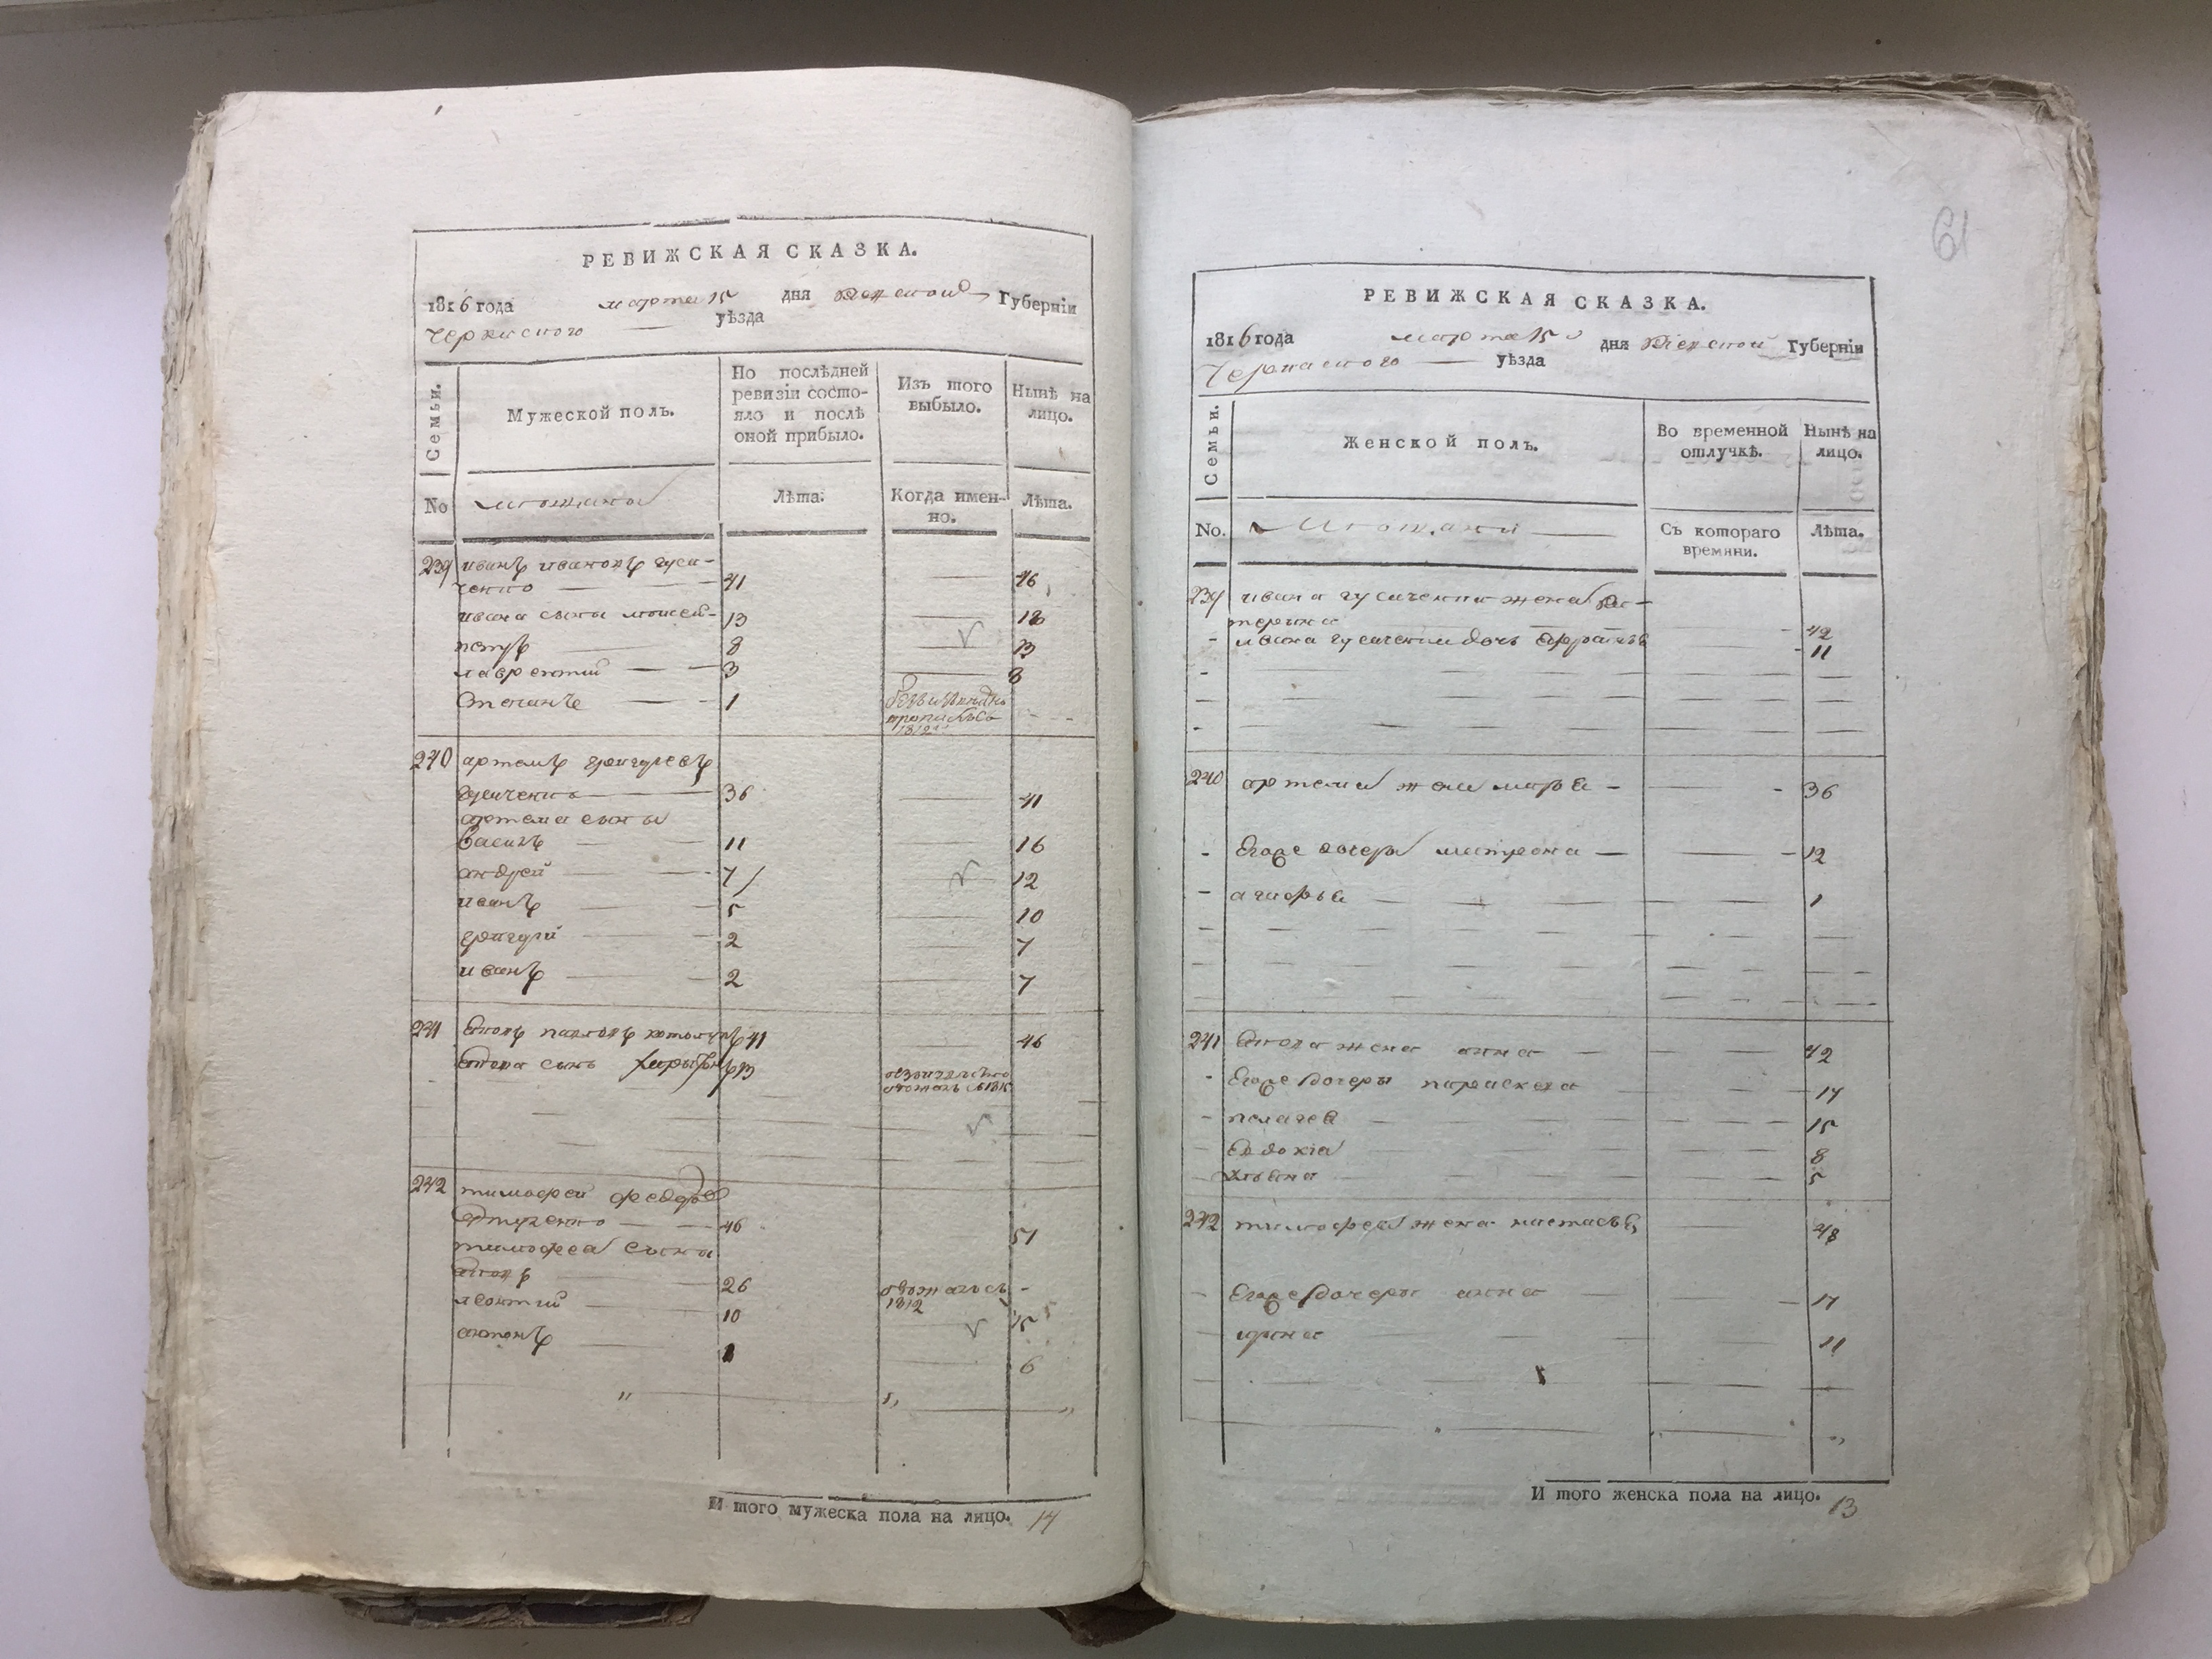 РЕВИЖСКАЯ СКАЗКА.
1816 года марта 15 дня Киевской Губерніи
Черкаского уѣзда
Семьи.
Мужеской полъ.
По послѣдней ревизіи состо-
яло и послѣ
оной прибыло.
Изъ того
выбыло.
Нынѣ на
лицо.
No
Лѣта.
Когда имен-
но.
Лѣта.
239 иванъ ивановъ гуса-
ченко 41 46
ивана сыны моисей 13 18
петръ 8 13
лаврентий 3 8
Степанъ 1
1812
240 артемъ григорьевъ
гусаченко 36 41
артема сыны
василь 11 16
андрей 7 12
иванъ 5 10
григорий 2 7
иванъ 2 7
241 павловъ 41 46
сынъ 13
242 тимофей федоровъ
46 51
тимофея сыны
26
1812
леонтий 10 15
антонъ 1 6
И того мужеска пола на лицо. 14
61
РЕВИЖСКАЯ СКАЗКА.
1816 года марта 15 дня Киевской Губерніи
Черкаского уѣзда
Семьи.
Женской полъ.
Во временной
отлучкѣ.
Нынѣ на
лицо.
No.
Съ котораго
времяни.
Лѣта.
239 ивана гусаченка жена ка-
терина 42
ивана гусаченка дочь 11
240 артема жена марья 36
Егоже дочери матрона 12
агафья 1
241 жена анна 42
Егоже дочери параскева 17
пелагея 15
Евдокіа 8
ульяна 5
242 тимофея жена настасья 48
Егоже дочери анна 17
ирина 11
И того женска пола на лицо. 13